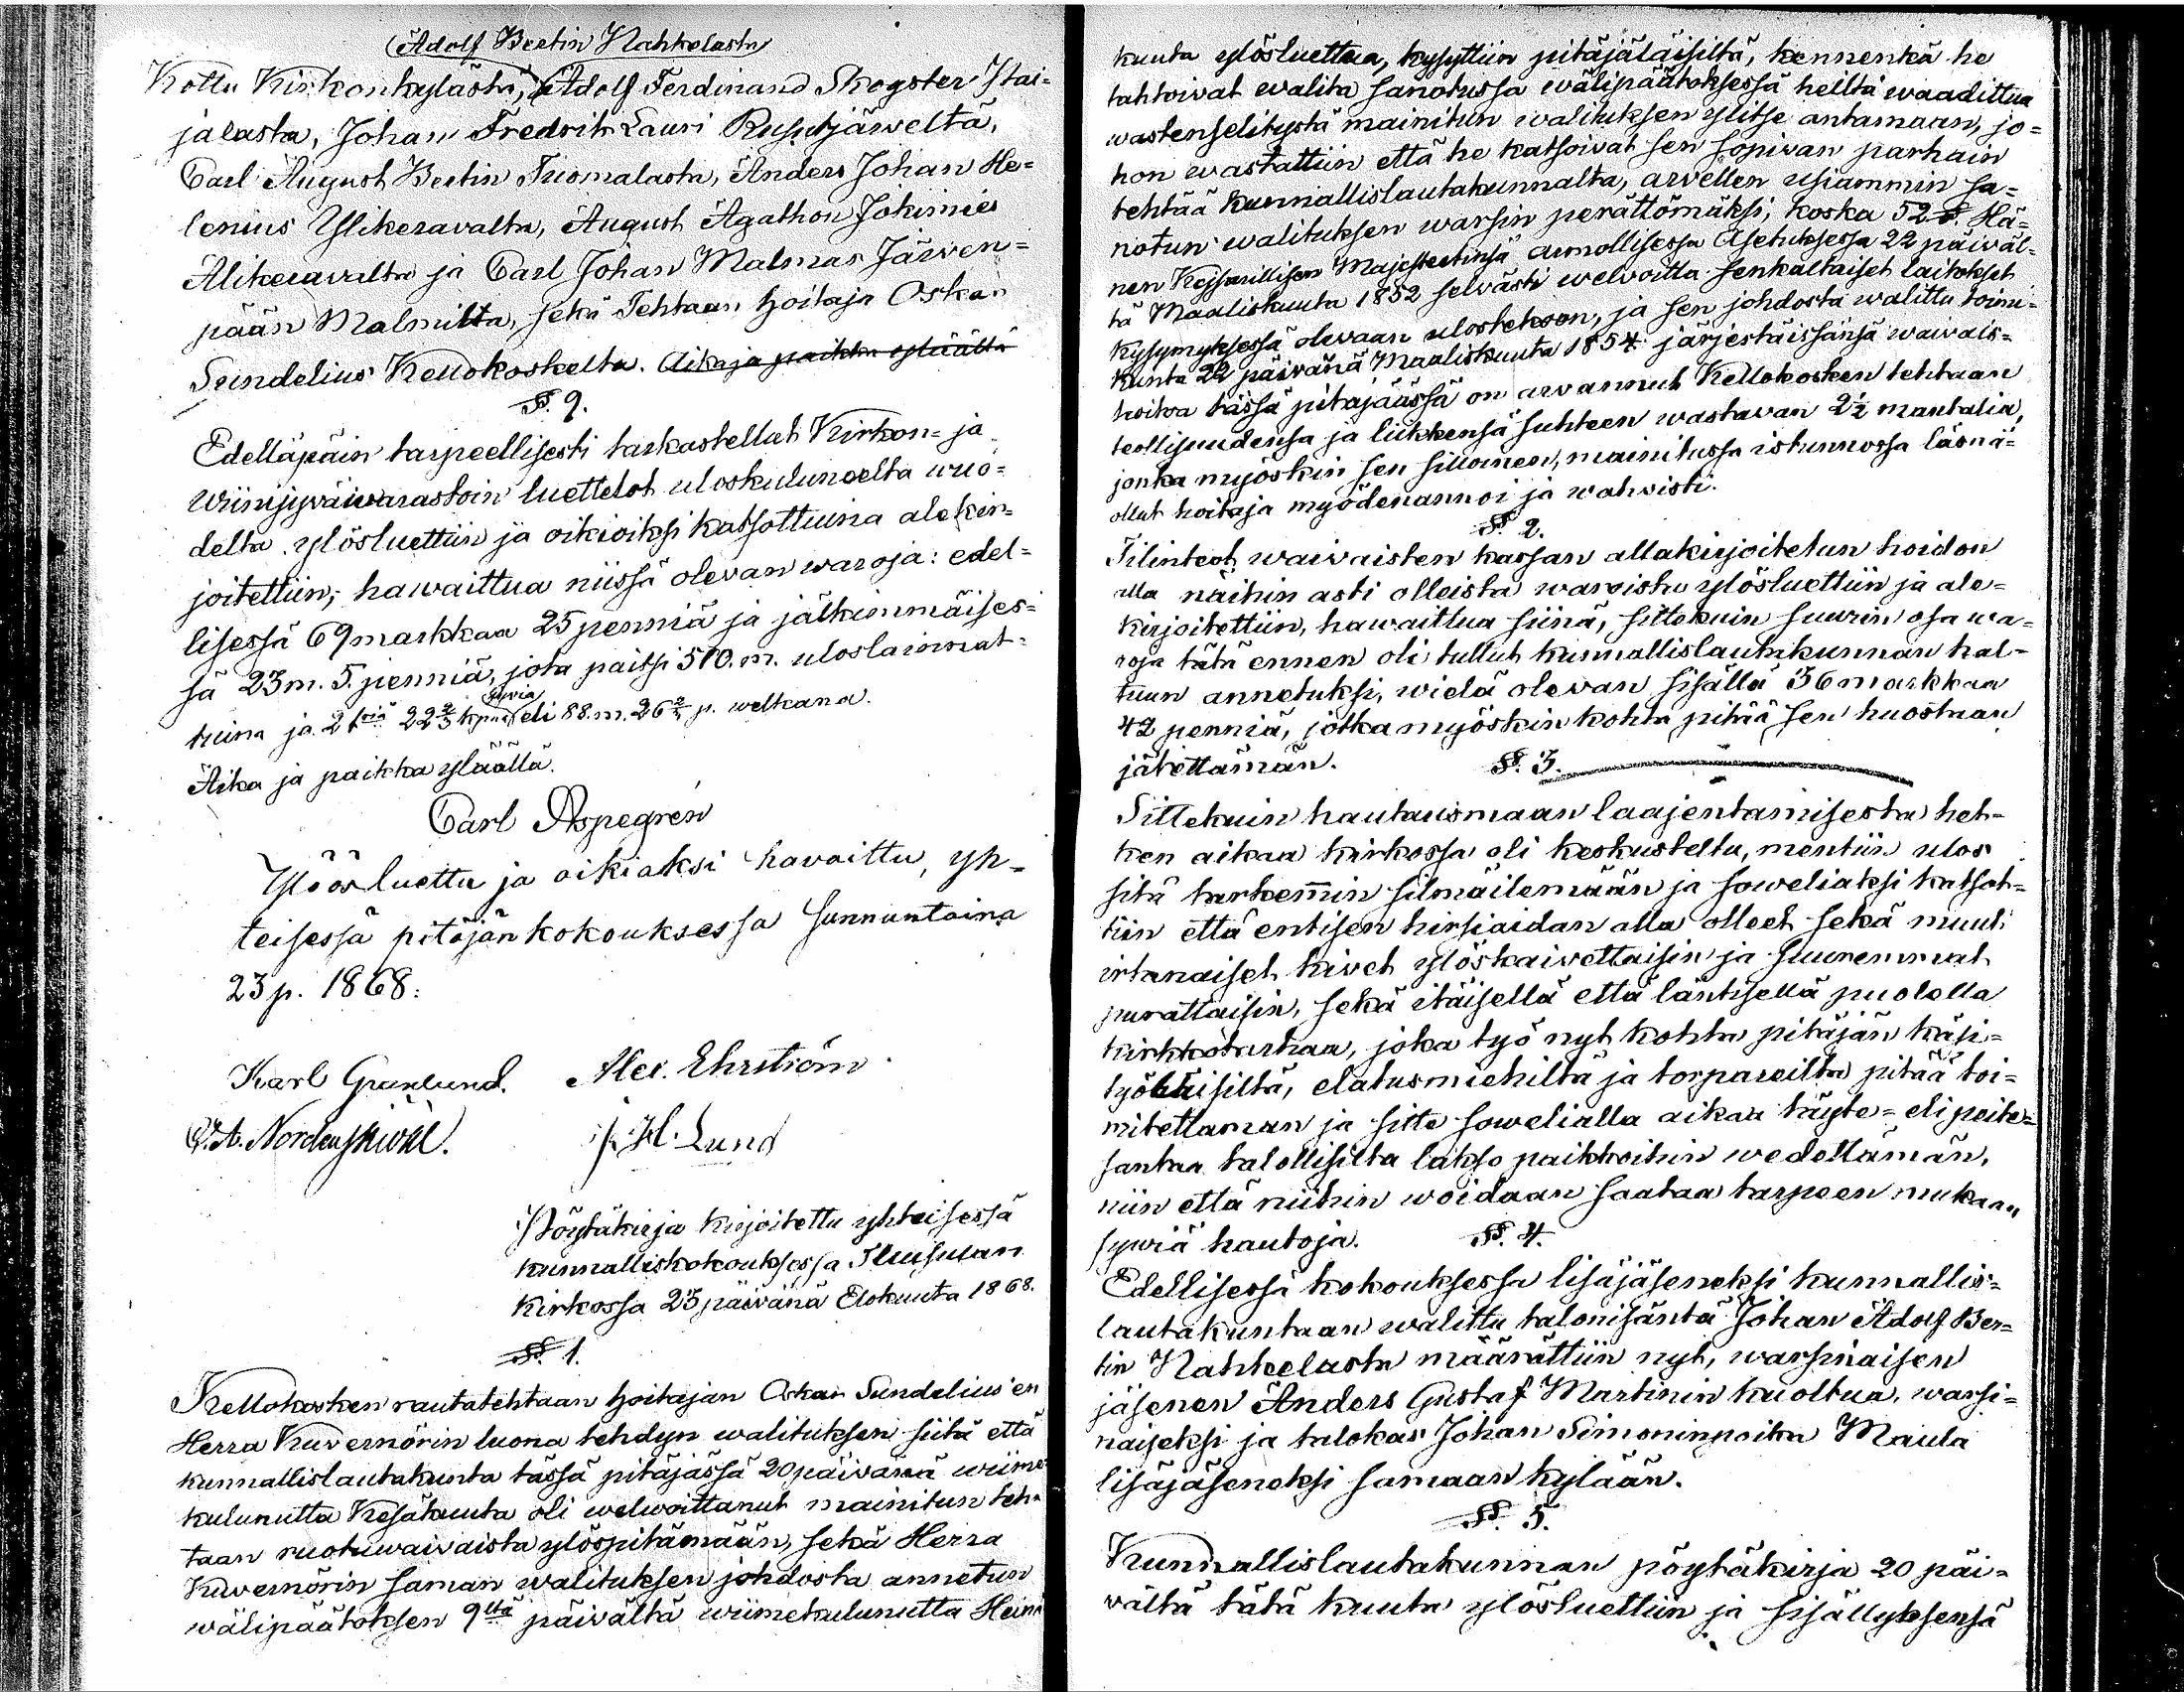 Adolf Bertin Nahkelasta
Kottu Kirkonkylästä, Adolf Ferdinand Skogster Itai=
jalasta, Johan Fredrik Lauri Rusutjäweltä,
Carl August Bertin Tuomalasta, Anders Johan He=
lenius Ylikeravalta, August Agathon Jokimies
Alikeravalta ja Carl Johan Malmar Järwen=
pään Malmilta, sekä Tehtaan hoitaja Oskar
Sundelius Kellokoskelta. Aika ja paikka ylläällä
§. 9.
Edelläpäin tarpeellisesti tarkastellut Kirkon= ja
Wiinijywäwarastoin luettelot uloskuluneelta wuo=
delta ylösluettiin ja oikioiksi katsottuina alekir=
joitettiin; hawaittua niissä olevan waroja: edel=
lisessä 69 markkaa 25 penniä ja jälkimmäises=
sä 23 m. 5. penniä, jota paitsi 510. m. uloslainnat=
tuina ja 21 22 2/3 kpnä jywiä eli 88. m. 26 2/3 p. welkana.
Aika ja paikka ylläällä.
Carl Aspegrén
Ylöösluettu ja oikiaksi havaittu, yh=
teisessä pitäjänkokouksessa Sunnuntaina
23 p. 1868:
Karl Granlund. Alex. Ehrström
A. Nordenskiöld. J. H. Lund
Pöytäkirja kirjoitettu yhteisessä
kunnalliskokouksessa Tuusulan
Kirkossa 23 päivänä Elokuuta 1868.
§. 1.
Kellokosken rautatehtaan hoitajan Oskar Sundelius'en
Herra Kuvernörin luona tehdyn walituksen siitä että
kunnallislautakunta tässä pitäjässä 20 päivänä wiime
kulunutta Kesäkuuta oli welwoittanut mainitun teh=
taan ruotuwaivaista ylöspitämään, sekä Herra
Kuvernörin saman walituksen johdosta annetun
wälipäätöksen 9ltä päivältä wiimekulunutta Heinä
kuuta ylösluettua, kysyttiin pitäjäläisiltä, kennenkä he
tahtoivat walita sanotussa wälipäätöksessä heiltä waadittua
wastenselitystä mainitun walituksen ylitse antamaan, jo=
hon wastattiin että he katsoivat sen sopivan parhain
tehtää kunnallislautakunnalta, arvellen usiammin sa=
notun walituksen warsin perättömäksi, koska 52 §. Hä=
nen Keisarillisen Majesteetinsä armollisessa Asetuksessa 22 päiväl=
tä Maaliskuuta 1852 selvästi welvoitta senkaltaiset laitokset
kysymyksessä olevaan ulostekoon, ja sen johdosta walittu toimi=
kunta 22 päivänä Maaliskuuta 1854 järjestäissänsä waivais=
hoitoa tässä pitäjäässä on arvannut Kellokosken tehtaan
teollisuudensa ja liikkensä suhteen wastavan 2 1/2 mantalia,
jonka myöskin sen silloinen, mainitussa istunnossa läsnä=
ollut hoitaja myödenannoi ja wahvisti.
§. 2.
Tilinteot waivaisten kassan allakirjoitetun hoidon
alla näihin asti olleista waroista ylösluettiin ja ale=
kirjoitettiin, hawaittua siinä, sittekuin suurin osa wa=
roja tätä ennen oli tullut kunnallislautakunnan hal=
tuun annetuksi, wielä olevan sisällä 36 markkaa
42 penniä, jotka myöskin kohta pitää sen huostaan
jätettämän. §. 3.
Sittekuin hautausmaan laajentamisesta het=
ken aikaa kirkossa oli keskusteltu, mentiin ulos
sitä tarkemin silmäilemään ja soweliaksi katsot=
tiin että entisen hirsiaidan alla olleet sekä muut
irtanaiset kivet ylöskaivettaisin ja suuremmat
purattaisin, sekä itäisellä että läntisellä puolella
kirkkotarhaa, joka työ nyt kohta pitäjän käsi=
työläisiltä, elatusmiehiltä ja torpareilta pitää toi=
mitettaman ja sitte sowelialla aikaa täyte= eli peite=
santaa talollisilta lakso paikkoihin wedettämän,
niin että niihin woidaan saataa tarpeen mukaan
sywiä hautoja. §. 4.
Edellisessä kokouksessa lisäjäseneksi kunnallis=
lautakuntaan walittu talonisäntä Johan Adolf Ber=
tin Nahkelasta määrättiin nyt, warsinaisen
jäsenen Anders Gustaf Martinin kuoltua, warsi=
naiseksi ja talokas Johan Simoninpoika Maula
lisäjäseneksi samaan kylään.
§. 5.
Kunnallislautakunnan pöytäkirja 20 päi=
vältä tätä kuuta ylösluettiin ja sisällyksensä